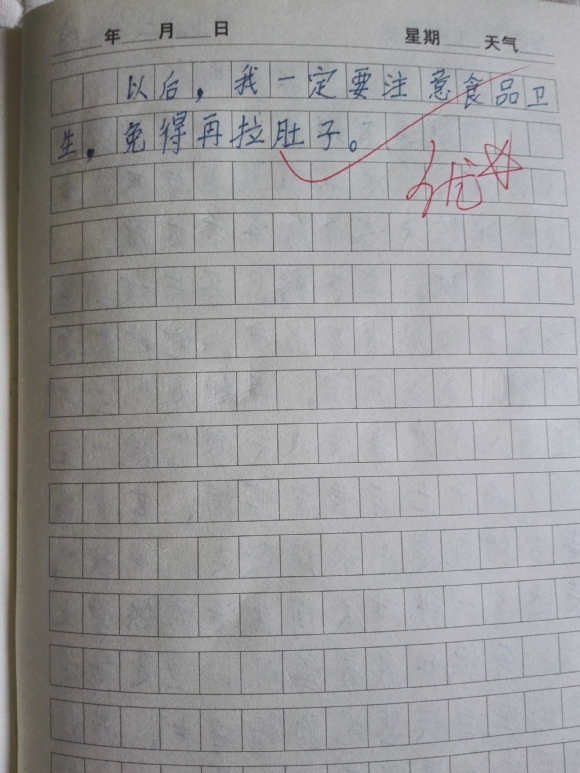 年 月 日 星期 天气
以后，我一定要注意食品卫
生，免得再拉肚子。
优